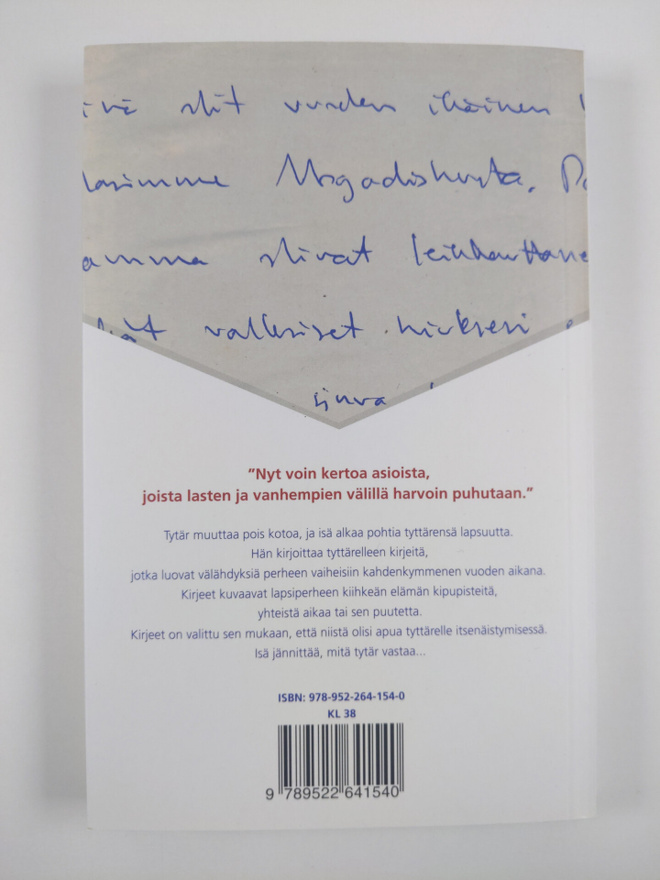 olit vuoden ikäinen
Mogadishusta.
olivat
valkoiset hiuksesi
"Nyt voin kertoa asioista,
joista lasten ja vanhempien välillä harvoin puhutaan."
Tytär muuttaa pois kotoa, ja isä alkaa pohtia tyttärensä lapsuutta.
Hän kirjoittaa tyttärelleen kirjeitä,
jotka luovat välähdyksiä perheen vaiheisiin kahdenkymmenen vuoden aikana.
Kirjeet kuvaavat lapsiperheen kiihkeän elämän kipupisteitä,
yhteistä aikaa tai sen puutetta.
Kirjeet on valittu sen mukaan, että niistä olisi apua tyttärelle itsenäistymisessä.
Isä jännittää, mitä tytär vastaa...
ISBN: 978-952-264-154-0
KL 38
9 789522 641540